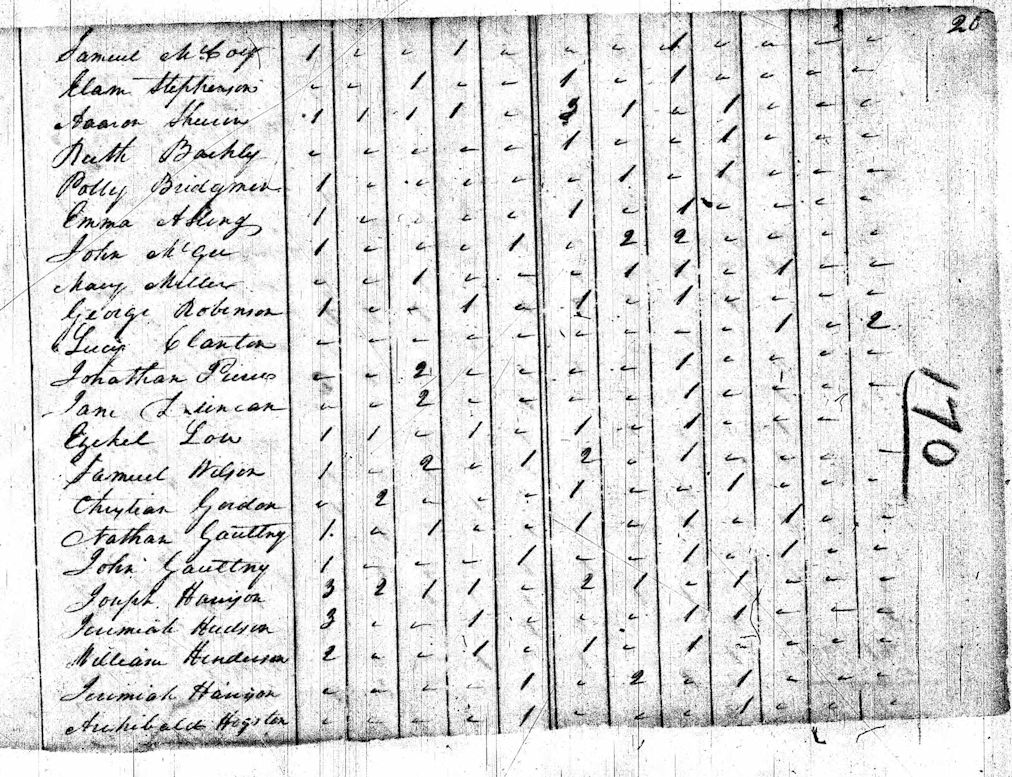 20
Samuel McCoy 1 - - 1 - - - 1 - - - -
Elam Stephenson - - 1 - - 1 - 1 - - - -
Aaaron 1 1 1 1 - 3 1 - 1 - - -
Ruth Barkly - - - - - 1 - - 1 - - -
Polly Bridgmen 1 - - - - - 1 - 1 - - -
Emma Asling 1 - - - - 1 - 1 - - - -
John McGee 1 - - - 1 - 2 2 - - - -
Mary Miller - - 1 - - - 1 1 - 1 - -
George Robinson 1 - - 1 - 1 - 1 - - - -
Lucy Clanton - - - - - - - - - 1 - 2
Jonathan - - 2 - - - - 1 - - - -
Jane Duncan - - 2 - - - - 1 - - - -
Ezekel Low 1 1 - 1 - 1 - 1 - - - -
Samuel Wilson 1 - 2 - 1 2 - 1 - - - -
Chrystian Gordon - 2 - - - 1 - - 1 - - -
Nathan Gaultny 1 - 1 - - 1 - 1 - 1 - -
John Gaultny 1 - - - 1 - - 1 - 1 - -
Joseph Harrison 3 2 1 1 - 2 1 - 1 - - -
Jeremiah Hudson 3 - - 1 - - - 1 1 - - -
William Henderson 2 - - 1 - 1 - 1 - - - -
Jeremiah Harrison - - - - 1 - 2 - 1 - - -
Archibald Hogsten - - - - 1 - - - 1 - - -
170